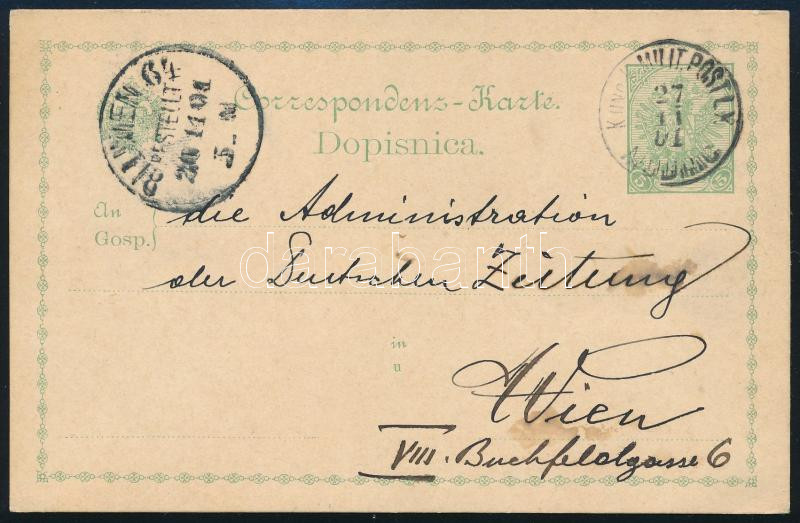 Correspondenz-Karte.
Dopisnica.
WIEN 64
BESTELLT
11 01
MILIT. POST LX
27
11
01
5 5
An
Gosp.
die Administration
der Deutschen Zeitung
in
u
Wien
VIII. Buchfeldgasse 6
darabanth